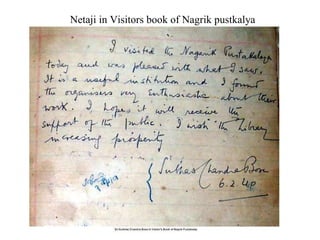 Netaji in Visitors book of Nagrik pustkalya
I visited the Nagarik Pustakalaya
today and was pleased with what I saw.
It is a useful institution and I found
the organisers very enthusiastic about their
work. I hope it will receive the
support of the public. I wish the Library
increasing prosperity
Subhas Chandra Bose
6.2.40